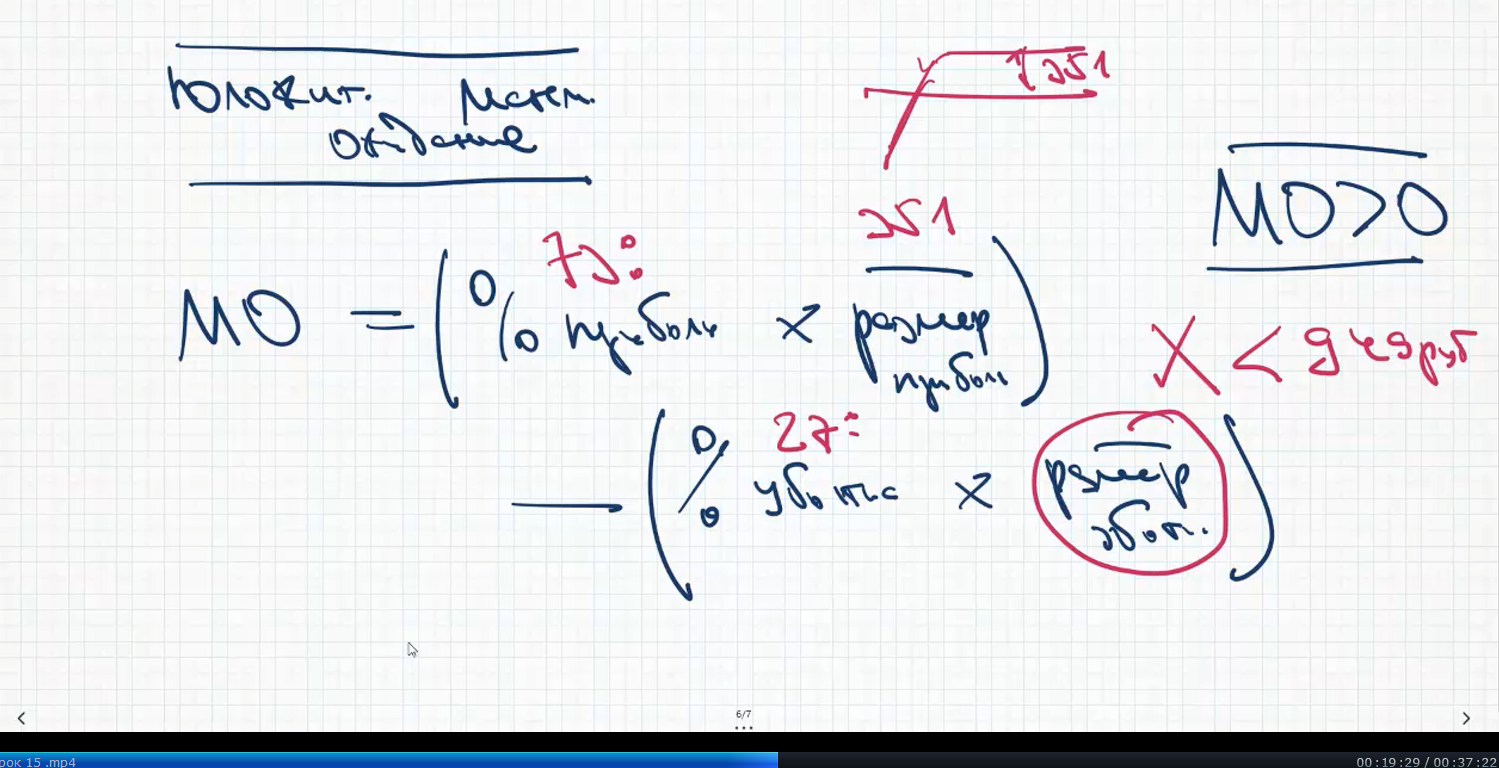 Положит. Матем.
ожидание
351
МО>0
73%
351
МО = (% прибыль × размер
прибыли)
X < 949 руб
27%
— (% убытка × размер
убыт.)
6/7
рок 15 .mp4
00:19:29 / 00:37:22